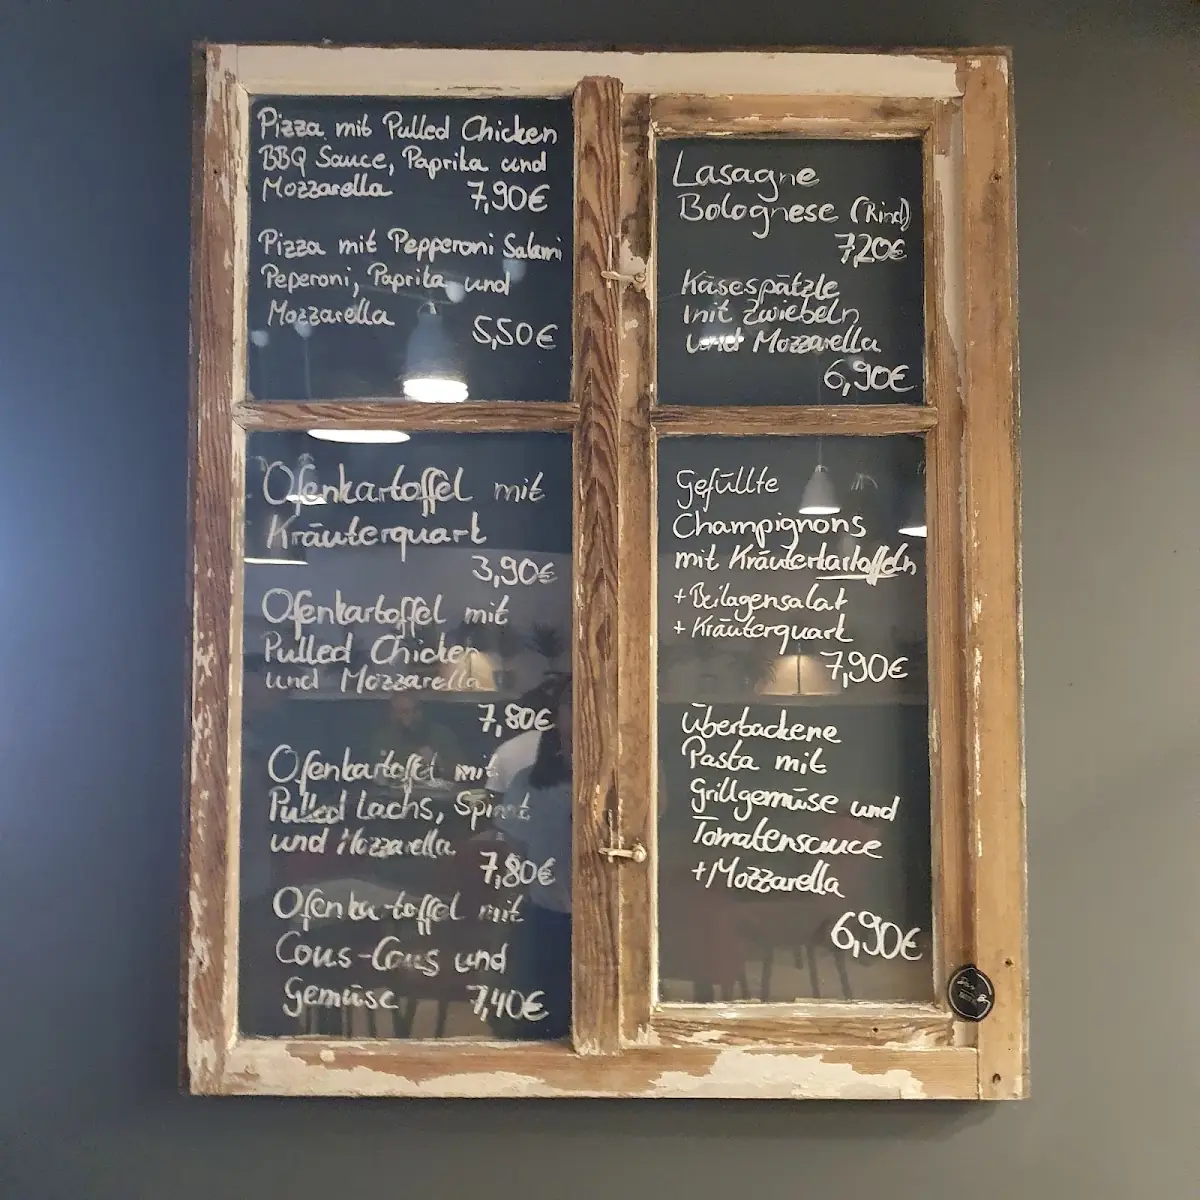 Pizza mit Pulled Chicken
BBQ Sauce, Paprika und
Mozzarella 7,90€
Pizza mit Pepperoni Salami
Peperoni, Paprika und
Mozzarella
5,50€
Ofenkartoffel mit
Kräuterquark
3,90€
Ofenkartoffel mit
Pulled Chicken
und Mozzarella
7,80€
Ofenkartoffel mit
Pulled Lachs, Spinat
und Mozzarella
7,80€
Ofenkartoffel mit
Cous-Cous und
Gemüse 7,40€
Lasagne
Bolognese (Rind)
7,20€
Käsespätzle
mit Zwiebeln
und Mozzarella
6,90€
Gefüllte
Champignons
mit Kräuterkartoffeln
+ Beilagensalat
+ Kräuterquark
7,90€
Überbackene
Pasta mit
Grillgemüse und
Tomatensauce
+ Mozzarella
6,90€